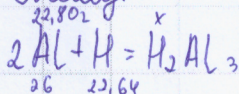 22,80г x
2Al + H = H₂Al₃
26 22,64